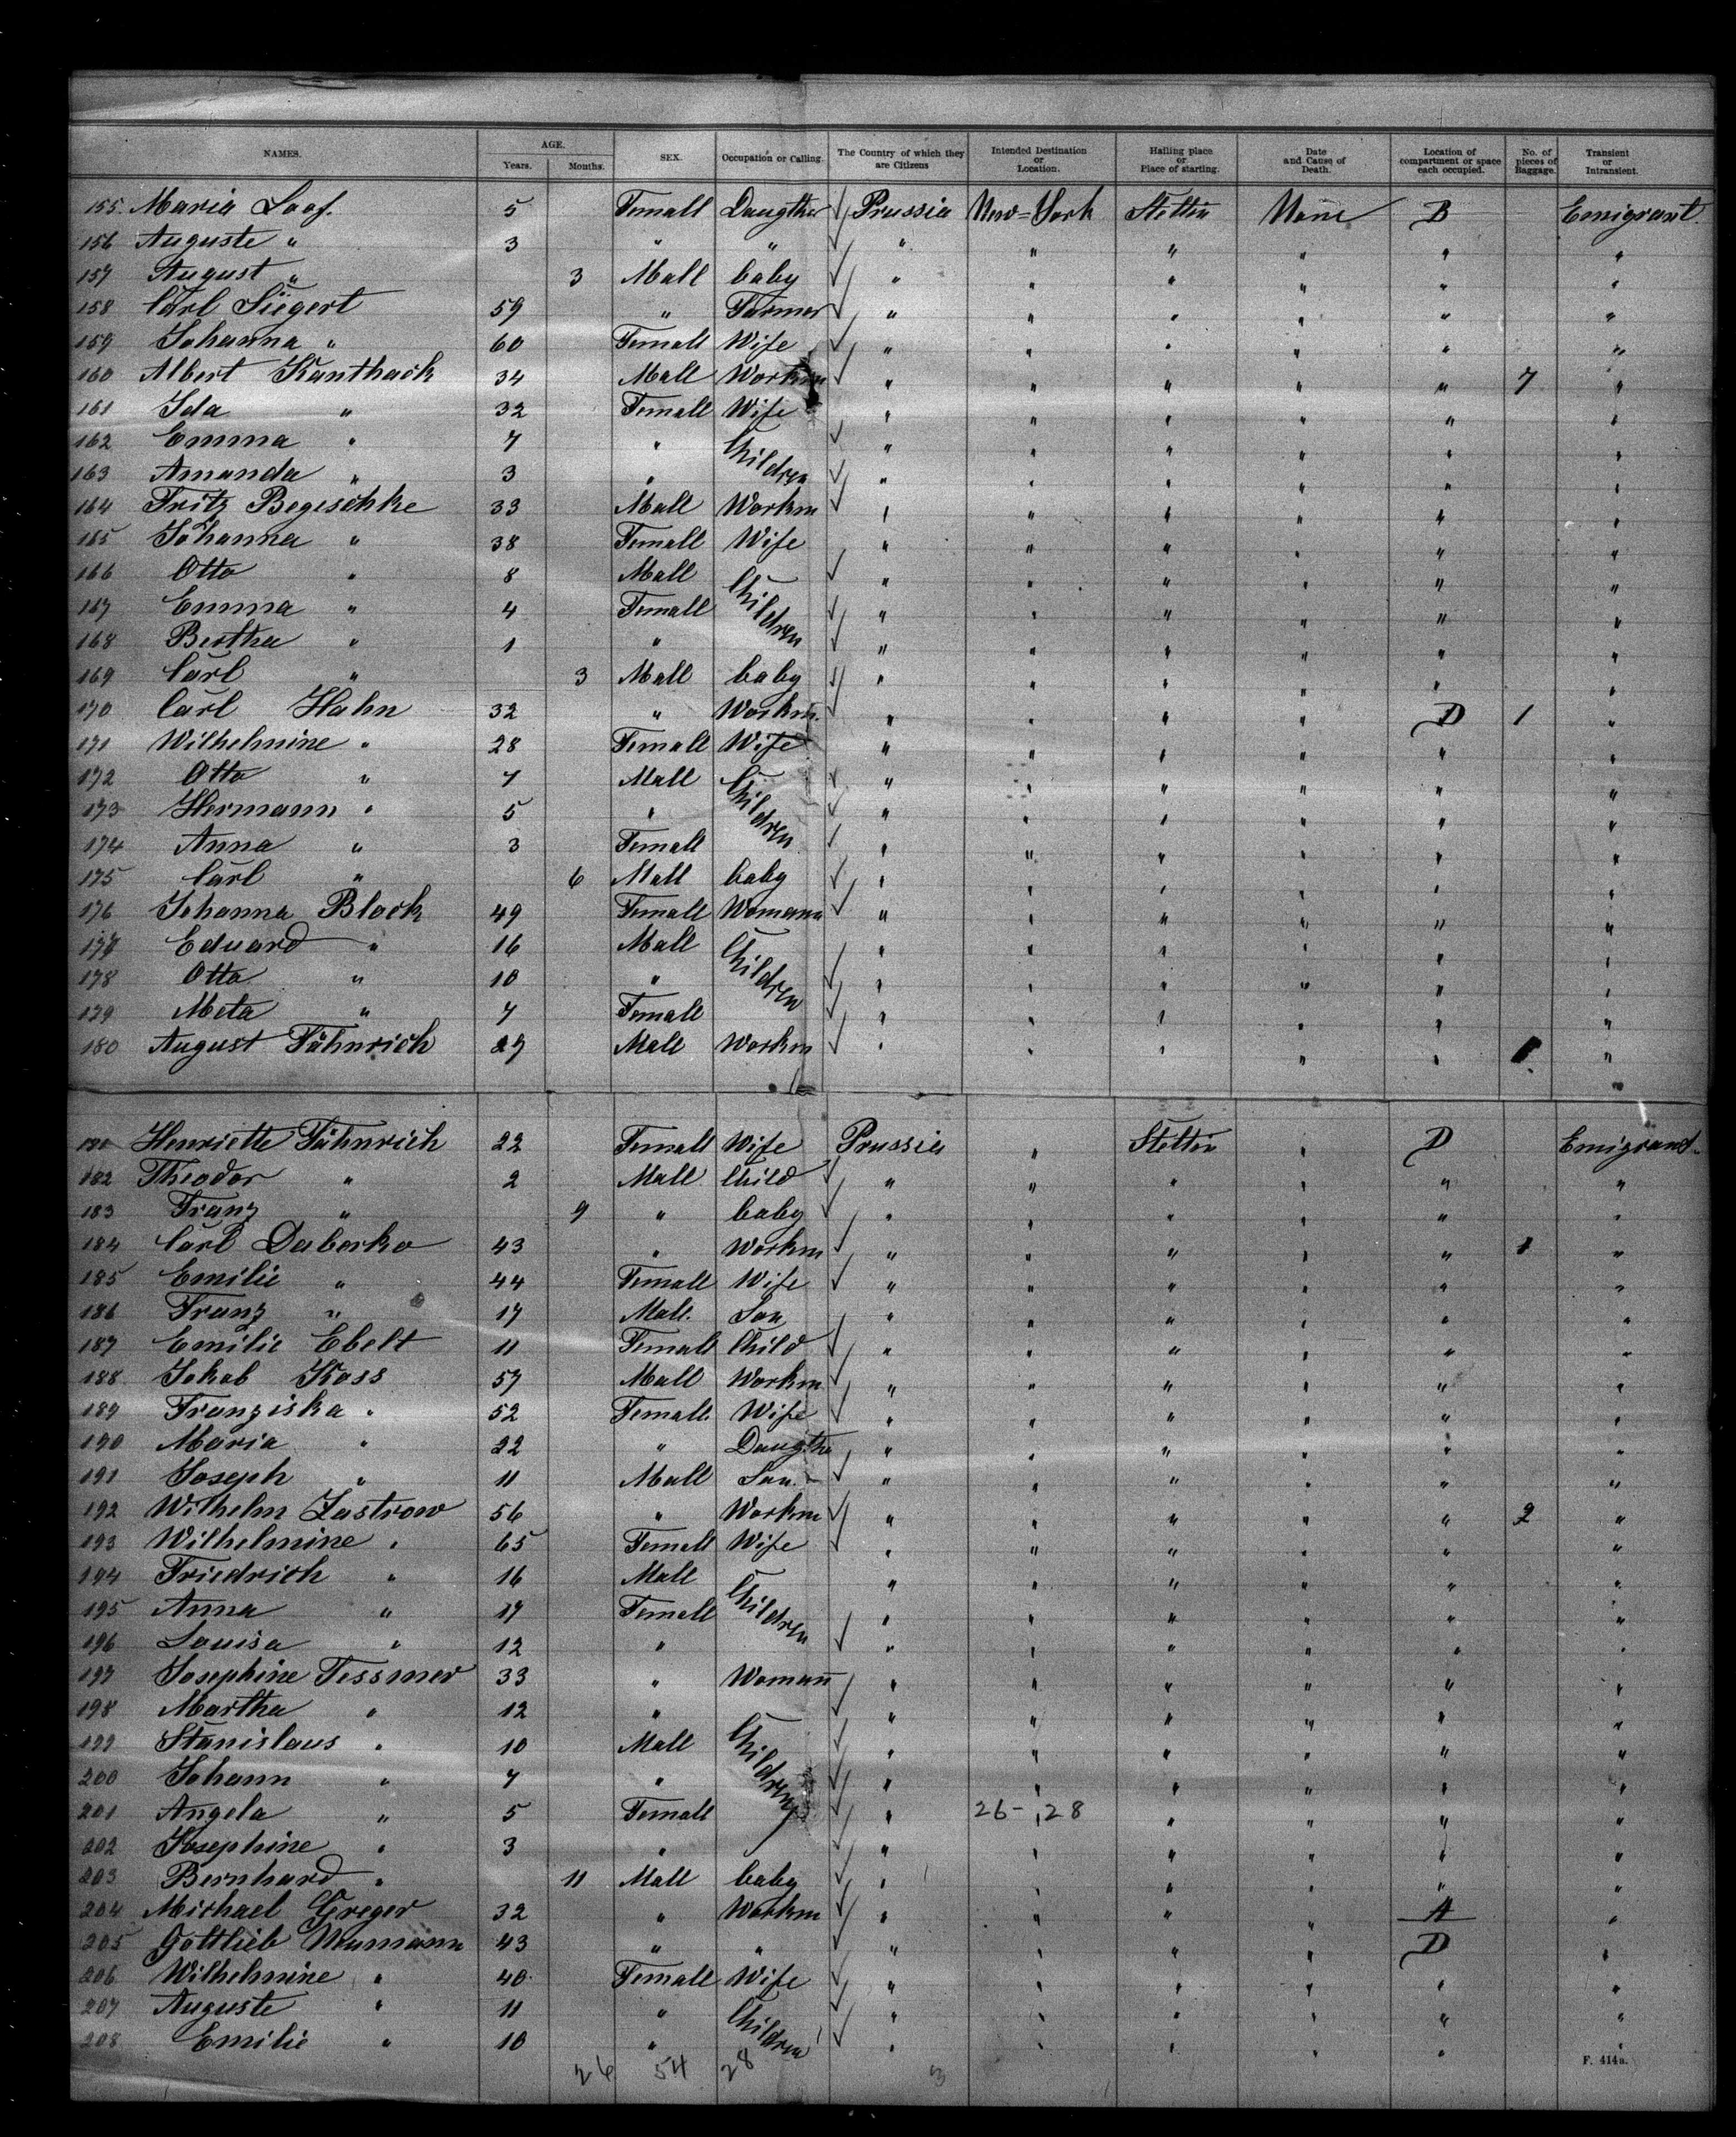 NAMES. AGE. Years. Months. SEX. Occupation or Calling. The Country of which they are Citizens Intended Destination or Location. Hailing place or Place of starting. Date and Cause of Death. Location of compartment or space each occupied. No. of pieces of Baggage. Transient or Intransient.
155 Maria Loof. 5 Femall Daugther ✓ Prussia New-York Stettin None B Emigrant
156 Auguste " 3 " " ✓ " " " " " "
157 August " 3 Mall baby ✓ " " " " " "
158 Carl Siegert 59 " Farmer ✓ " " " " " "
159 Johanna " 60 Femall Wife ✓ " " " " " "
160 Albert Kanthack 34 Mall Workm ✓ " " " " " 7 "
161 Ida " 32 Femall Wife " " " " " "
162 Emma " 7 " Children ✓ " " " " " "
163 Amanda " 3 " ✓ " " " " " "
164 Fritz Begeschke 33 Mall Workm ✓ " " " " " "
165 Johanna " 38 Femall Wife " " " " " "
166 Otto " 8 Mall Children ✓ " " " " " "
167 Emma " 4 Femall ✓ " " " " " "
168 Bertha " 1 " ✓ " " " " " "
169 Carl " 3 Mall baby ✓ " " " " " "
170 Carl Hahn 32 " Workm. ✓ " " " " D 1 "
171 Wilhelmine " 28 Femall Wife " " " " " "
172 Otto " 7 Mall Children ✓ " " " " " "
173 Hermann " 5 " ✓ " " " " " "
174 Anna " 3 Femall ✓ " " " " " "
175 Carl " 6 Mall baby ✓ " " " " " "
176 Johanna Block 49 Femall Womann ✓ " " " " " "
177 Eduard " 16 Mall Children " " " " " "
178 Otto " 10 " ✓ " " " " " "
179 Meta " 7 Femall ✓ " " " " " "
180 August Fähnrich 27 Mall Workm ✓ " " " " " "
181 Henriette Fähnrich 22 Femall Wife Prussia " Stettin " D Emigrant
182 Theodor " 2 Mall Child ✓ " " " " " "
183 Franz " 9 " baby ✓ " " " " " "
184 Carl Daberko 43 " Workm ✓ " " " " " 1 "
185 Emilie " 44 Femall Wife ✓ " " " " " "
186 Franz " 17 Mall. Son " " " " " "
187 Emilie Ebelt 11 Femall Child ✓ " " " " " "
188 Jakob Kass 57 Mall Workm ✓ " " " " " "
189 Franziska " 52 Femall Wife ✓ " " " " " "
190 Maria " 22 " Daugthe " " " " " "
191 Joseph " 11 Mall Son ✓ " " " " " "
192 Wilhelm Zastrow 56 " Workm ✓ " " " " " 2 "
193 Wilhelmine " 65 Femall Wife ✓ " " " " " "
194 Friedrich " 16 Mall Children " " " " " "
195 Anna " 17 Femall " " " " " "
196 Louisa " 12 " ✓ " " " " " "
197 Josephine Tessmer 33 " Womann " " " " " "
198 Martha " 12 " ✓ " " " " " "
199 Stanislaus " 10 Mall Children ✓ " " " " " "
200 Johann " 7 " ✓ " " " " " "
201 Angela " 5 Femall ✓ " 26- 28 " " " "
202 Josephine " 3 " ✓ " " " " " "
203 Bernhard " 11 Mall baby ✓ " " " " " "
204 Michael Greger 32 " Workm ✓ " " " " A "
205 Gottlieb Neumann 43 " " ✓ " " " " D "
206 Wilhelmine " 40 Femall Wife ✓ " " " " " "
207 Auguste " 11 " Children ✓ " " " " " "
208 Emilie " 10 " ✓ " " " " " "
26 54 28 3
F. 414a.